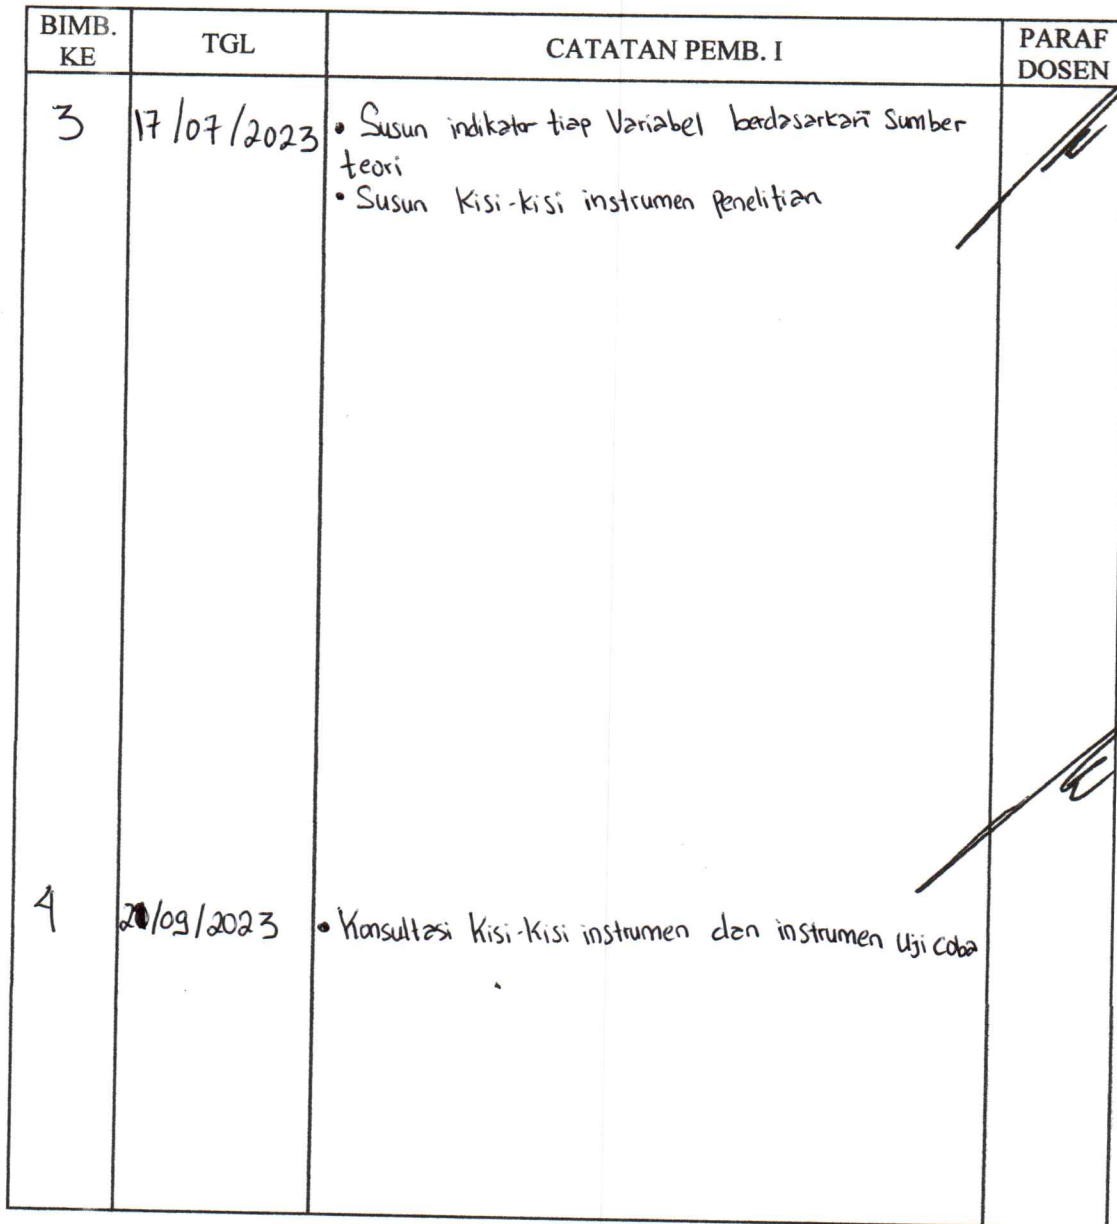 BIMB. KE TGL CATATAN PEMB. I PARAF DOSEN
3 17/07/2023 • Susun indikator tiap Variabel berdasarkan Sumber
teori
• Susun Kisi-kisi instrumen Penelitian
4 /09/2023 • Konsultasi Kisi-Kisi instrumen dan instrumen Uji coba